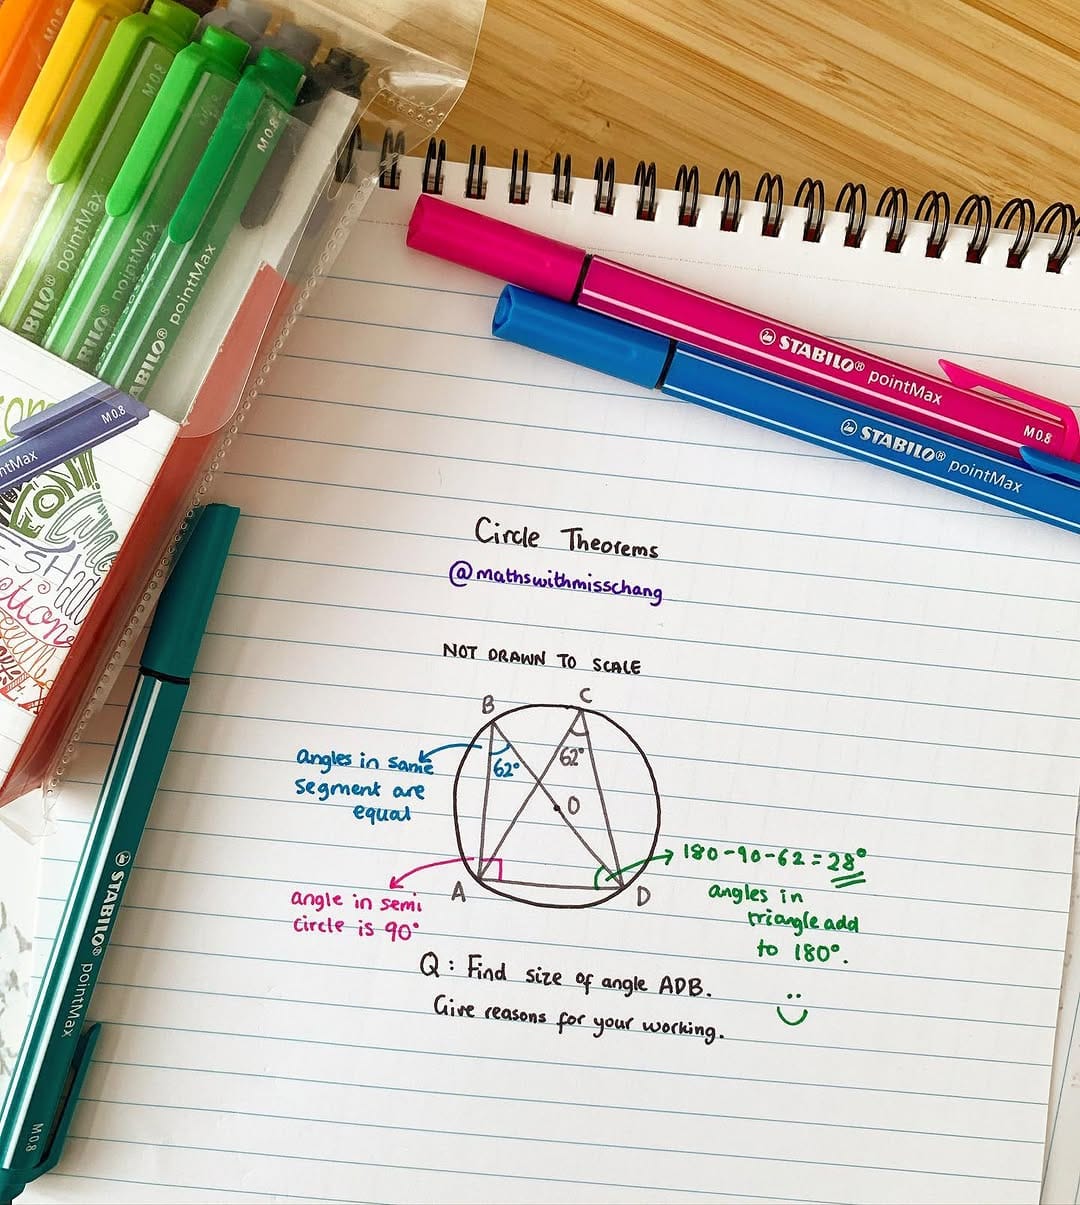 M0.8
M0.8
M0.8
STABILO® pointMax
STABILO® pointMax
STABILO® pointMax
M0.8
ntMax
STABILO® pointMax
M0.8
STABILO® pointMax
Circle Theorems
@mathswithmisschang
NOT DRAWN TO SCALE
B
C
62°
62°
O
A
D
angles in same
segment are
equal
angle in semi
circle is 90°
180-90-62=28°
angles in
triangle add
to 180°.
Q: Find size of angle ADB.
Give reasons for your working.
STABILO® pointMax
M0.8